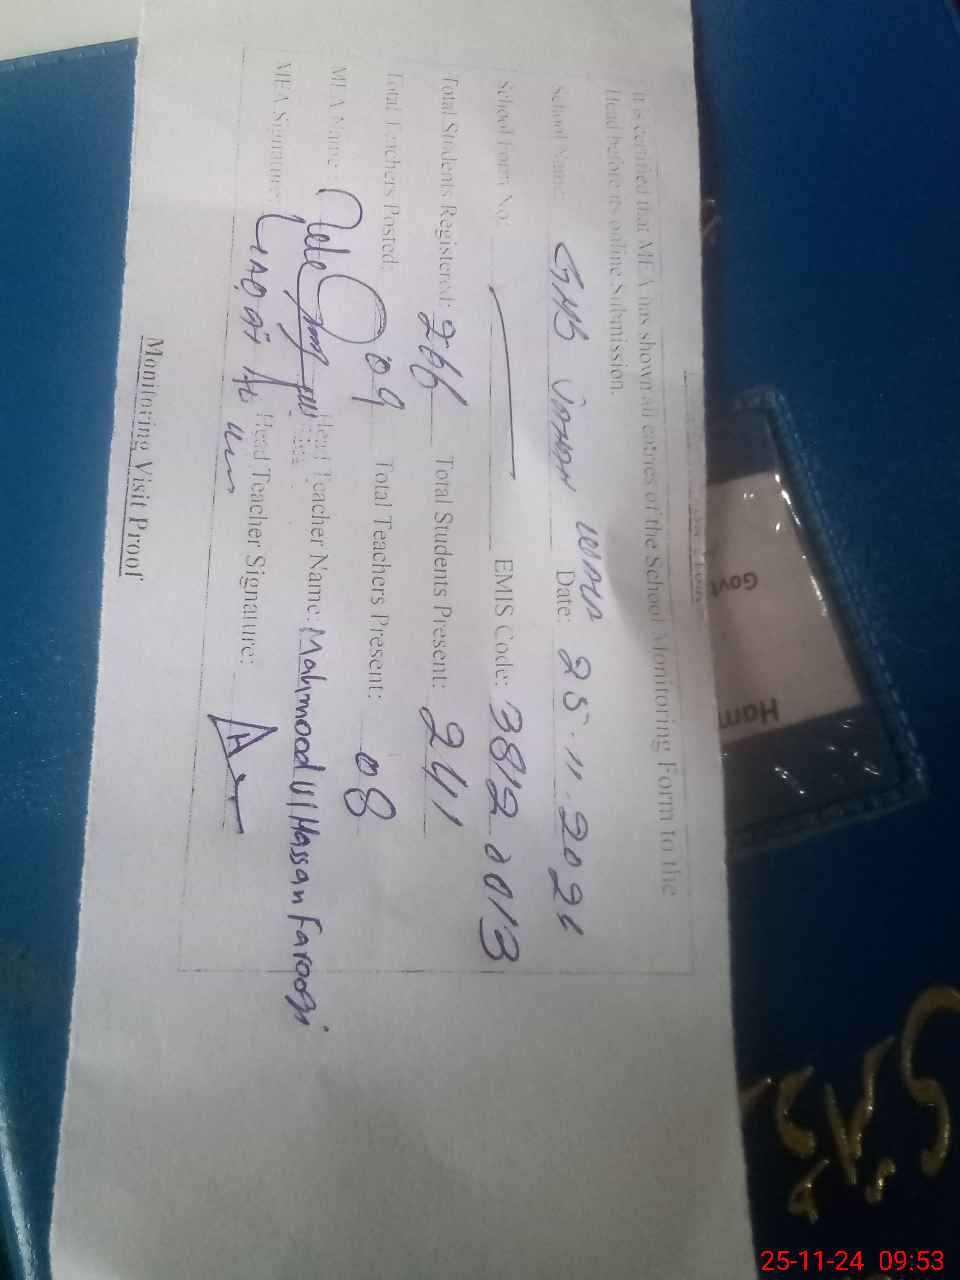 It is certified that MEA has shown all entries of the School Monitoring Form to the
Head before its online Submission.
School Name: GHS Date: 25-11-2024
School Form No: EMIS Code: 38120013
Total Students Registered: 266 Total Students Present: 241
Total Teachers Posted: 09 Total Teachers Present: 08
MEA Name: Head Teacher Name: Mahmood Ul Hassan Farooqi
MEA Signature: Head Teacher Signature:
Monitoring Visit Proof
Govt
Ham
25-11-24 09:53